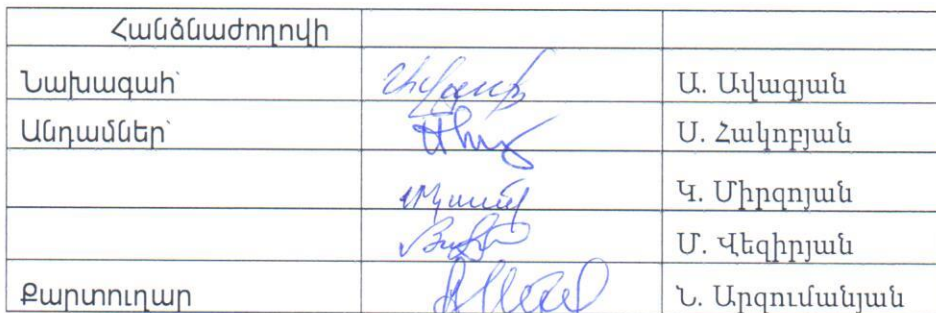 Հանձնաժողովի
Նախագահ՝ Ա. Ավագյան
Անդամներ՝ Ս. Հակոբյան
Կ. Միրզոյան
Մ. Վեզիրյան
Քարտուղար Ն. Արզումանյան